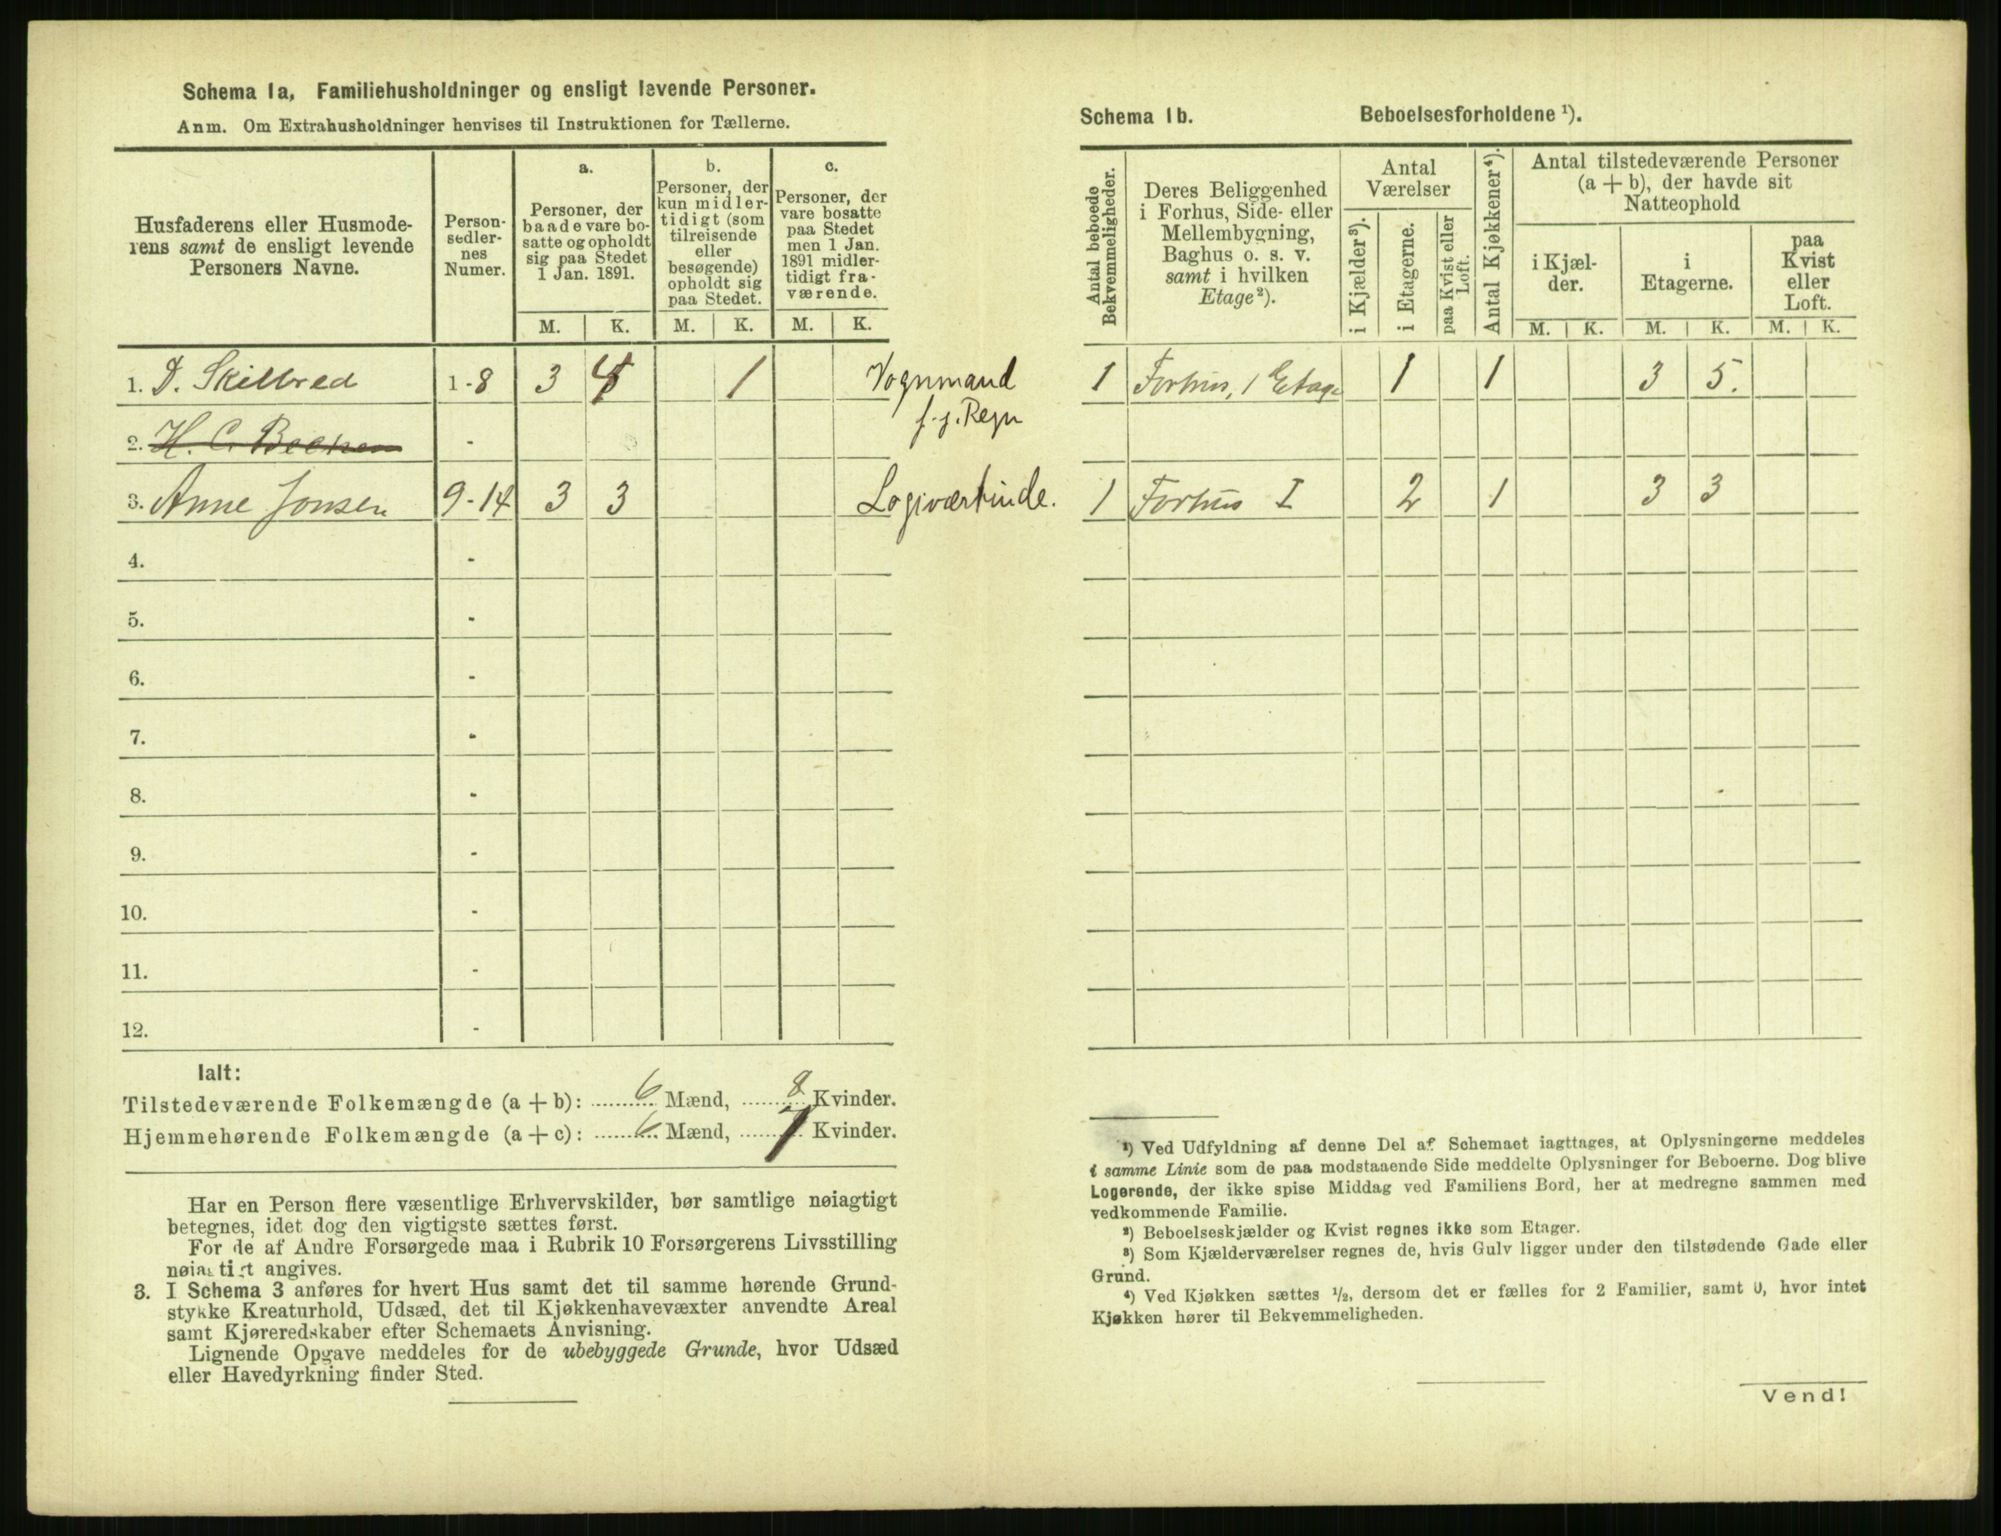 Schema 1a, Familiehusholdninger og ensligt levende Personer.
Anm. Om Extrahusholdninger henvises til Instruktionen for Tællerne.
Husfaderens eller Husmode-
rens samt de ensligt levende
Personers Navne.
Person-
sedler-
nes
Numer.
a.
Personer, der
baade vare bo-
satte og opholdt
sig paa Stedet
1 Jan. 1891.
b.
Personer, der
kun midler-
tidigt (som
tilreisende
eller
besøgende)
opholdt sig
paa Stedet.
c.
Personer, der
vare bosatte
paa Stedet
men 1 Jan.
1891 midler-
tidigt fra-
værende.
M. K. M. K. M. K.
1. D. Skilbred 1-8 3 4 1 Vognmand
f. j. Regn
2. H. C. -
3. Anne Jonsen 9-14 3 3 Logiværtinde.
4. -
5. -
6. -
7. -
8. -
9. -
10. -
11. -
12. -
Ialt:
Tilstedeværende Folkemængde (a + b): 6 Mænd, 8 Kvinder.
Hjemmehørende Folkemængde (a + c): 6 Mænd, 7 Kvinder.
Har en Person flere væsentlige Erhvervskilder, bør samtlige nøiagtigt
betegnes, idet dog den vigtigste sættes først.
For de af Andre Forsørgede maa i Rubrik 10 Forsørgerens Livsstilling
nøiagtigt angives.
3. I Schema 3 anføres for hvert Hus samt det til samme hørende Grund-
stykke Kreaturhold, Udsæd, det til Kjøkkenhavevæxter anvendte Areal
samt Kjøreredskaber efter Schemaets Anvisning.
Lignende Opgave meddeles for de ubebyggede Grunde, hvor Udsæd
eller Havedyrkning finder Sted.
Schema 1b. Beboelsesforholdene ¹).
Antal beboede
Bekvemmeligheder.
Deres Beliggenhed
i Forhus, Side- eller
Mellembygning,
Baghus o. s. v.
samt i hvilken
Etage²).
Antal
Værelser
i Kjælder³).
i Etagerne.
paa Kvist eller
Loft.
Antal Kjøkkener⁴).
Antal tilstedeværende Personer
(a + b), der havde sit
Natteophold
i Kjæl-
der.
i
Etagerne.
paa
Kvist
eller
Loft.
M. K. M. K. M. K.
1 Forhus, 1 Etage 1 1 3 5.
1 Forhus I 2 1 3 3
¹) Ved Udfyldning af denne Del af Schemaet iagttages, at Oplysningerne meddeles
i samme Linie som de paa modstaaende Side meddelte Oplysninger for Beboerne. Dog blive
Logerende, der ikke spise Middag ved Familiens Bord, her at medregne sammen med
vedkommende Familie.
²) Beboelseskjælder og Kvist regnes ikke som Etager.
³) Som Kjælderværelser regnes de, hvis Gulv ligger under den tilstødende Gade eller
Grund.
⁴) Ved Kjøkken sættes ½, dersom det er fælles for 2 Familier, samt 0, hvor intet
Kjøkken hører til Bekvemmeligheden.
Vend!